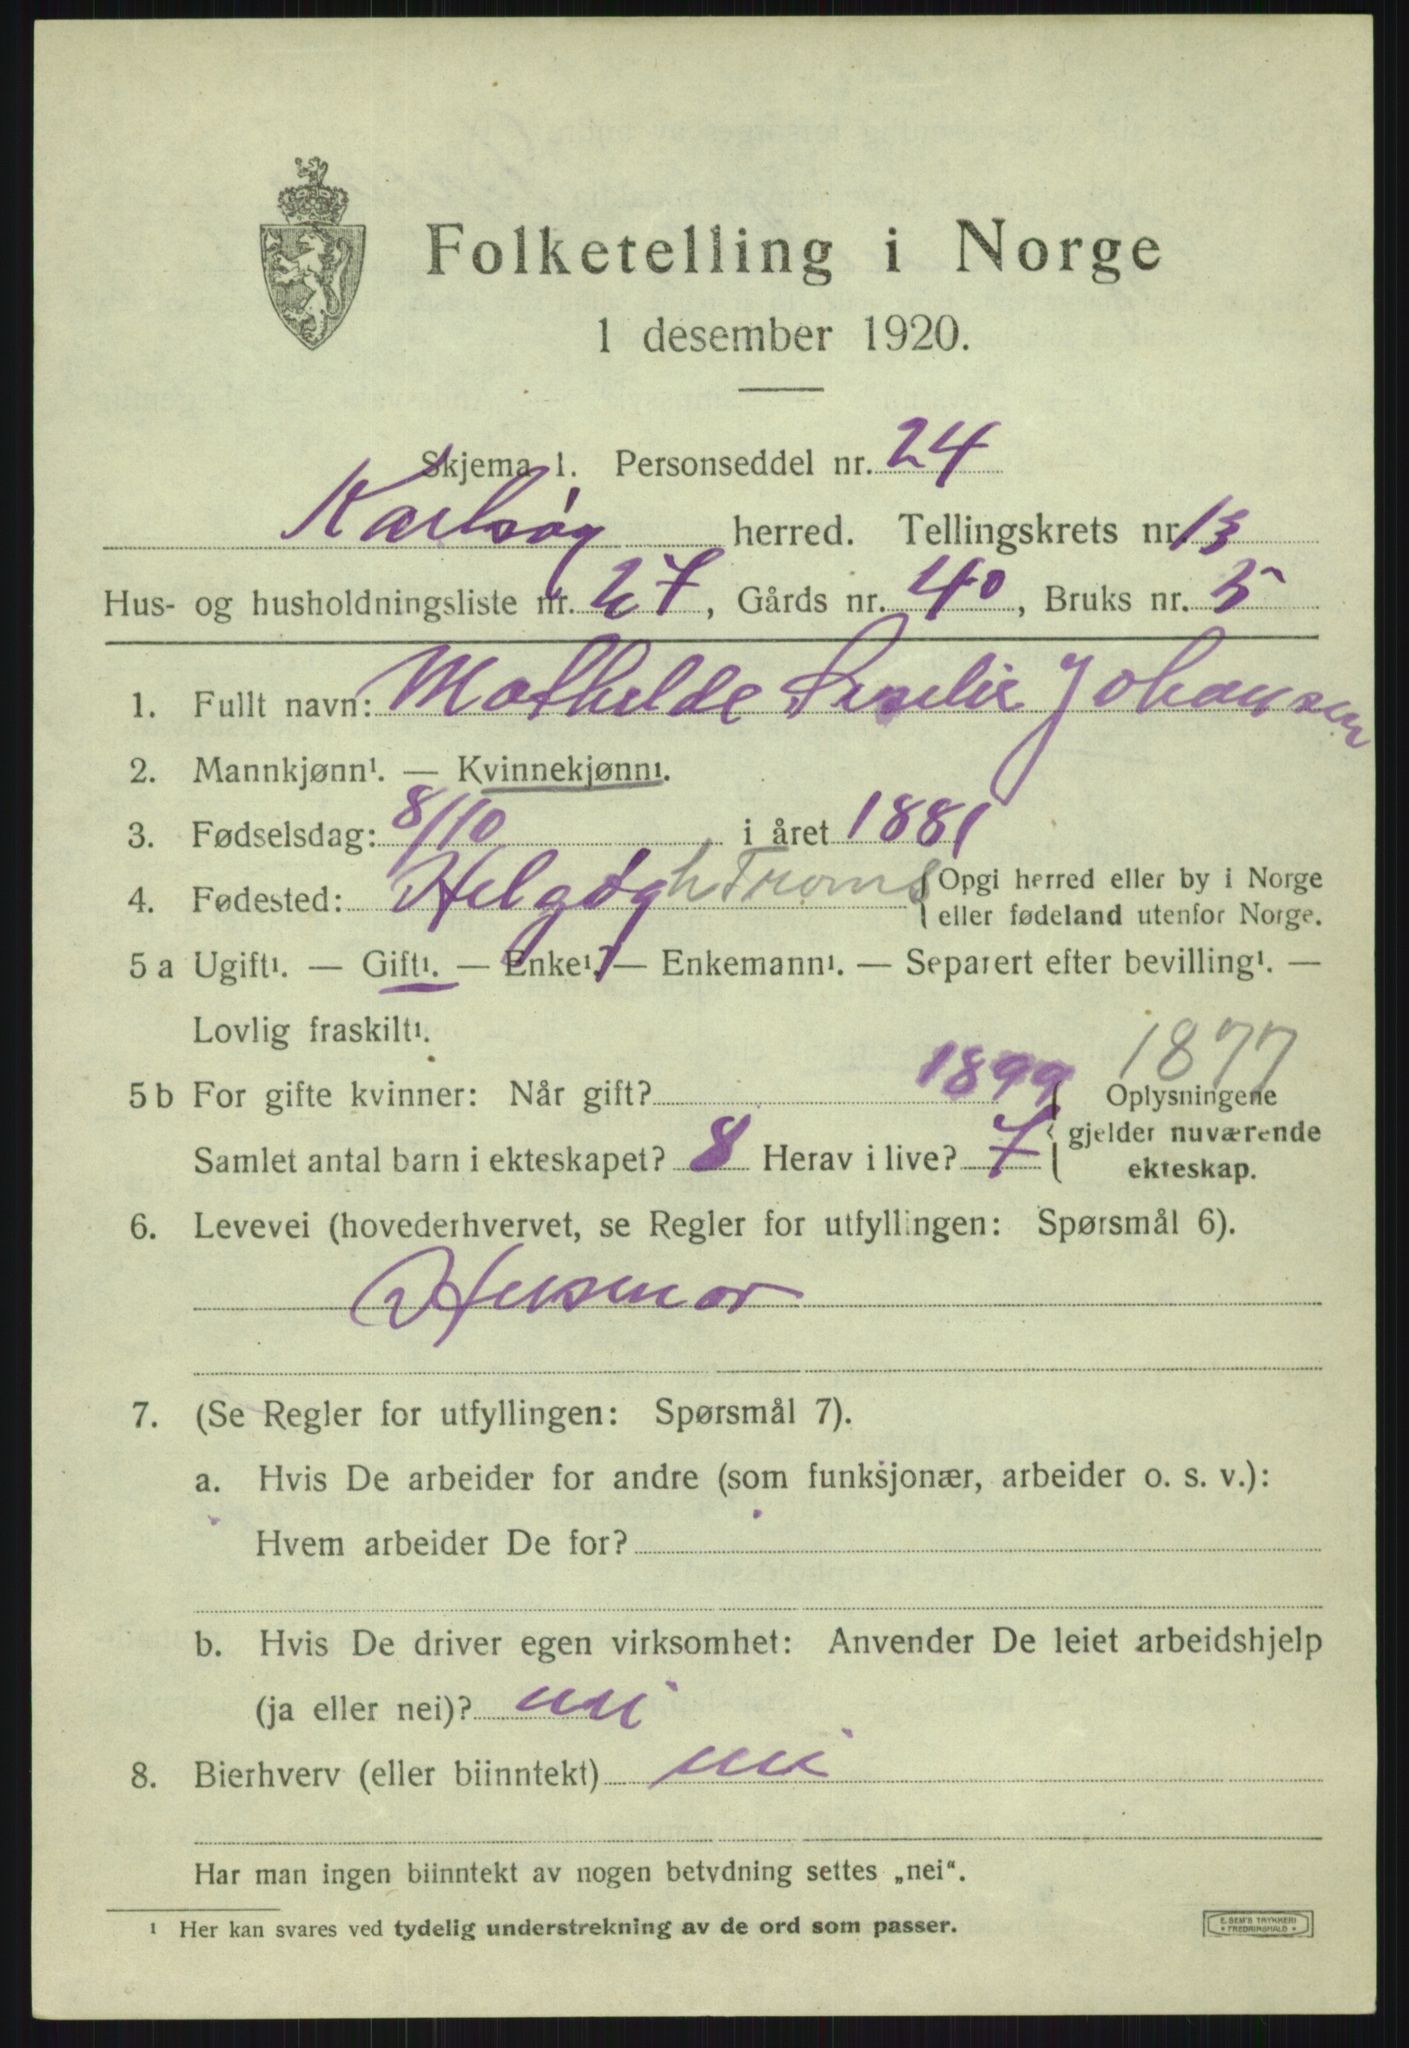 Folketelling i Norge
1 desember 1920.
Skjema 1. Personseddel nr. 24
Karlsøy herred. Tellingskrets nr. 13
Hus- og husholdningsliste nr. 27, Gårds nr. 40, Bruks nr. 5
1. Fullt navn: Mathilde Johansen
2. Mannkjønn¹. — Kvinnekjønn¹.
3. Fødselsdag: 8/10 i året 1881
4. Fødested: Helgøy h Troms { Opgi herred eller by i Norge
eller fødeland utenfor Norge.
5 a Ugift¹. — Gift¹. — Enke¹. — Enkemann¹. — Separert efter bevilling¹. —
Lovlig fraskilt¹.
1877
5 b For gifte kvinner: Når gift? 1899 { Oplysningene
gjelder nuværende
Samlet antal barn i ekteskapet? 8 Herav i live? 7 ekteskap.
6. Levevei (hovederhvervet, se Regler for utfyllingen: Spørsmål 6).
Husmor
7. (Se Regler for utfyllingen: Spørsmål 7).
a. Hvis De arbeider for andre (som funksjonær, arbeider o. s. v.):
Hvem arbeider De for?
b. Hvis De driver egen virksomhet: Anvender De leiet arbeidshjelp
(ja eller nei)? nei
8. Bierhverv (eller biinntekt) nei
Har man ingen biinntekt av nogen betydning settes „nei“.
¹ Her kan svares ved tydelig understrekning av de ord som passer.
E. SEM'S TRYKKERI
FREDRIKSHALD